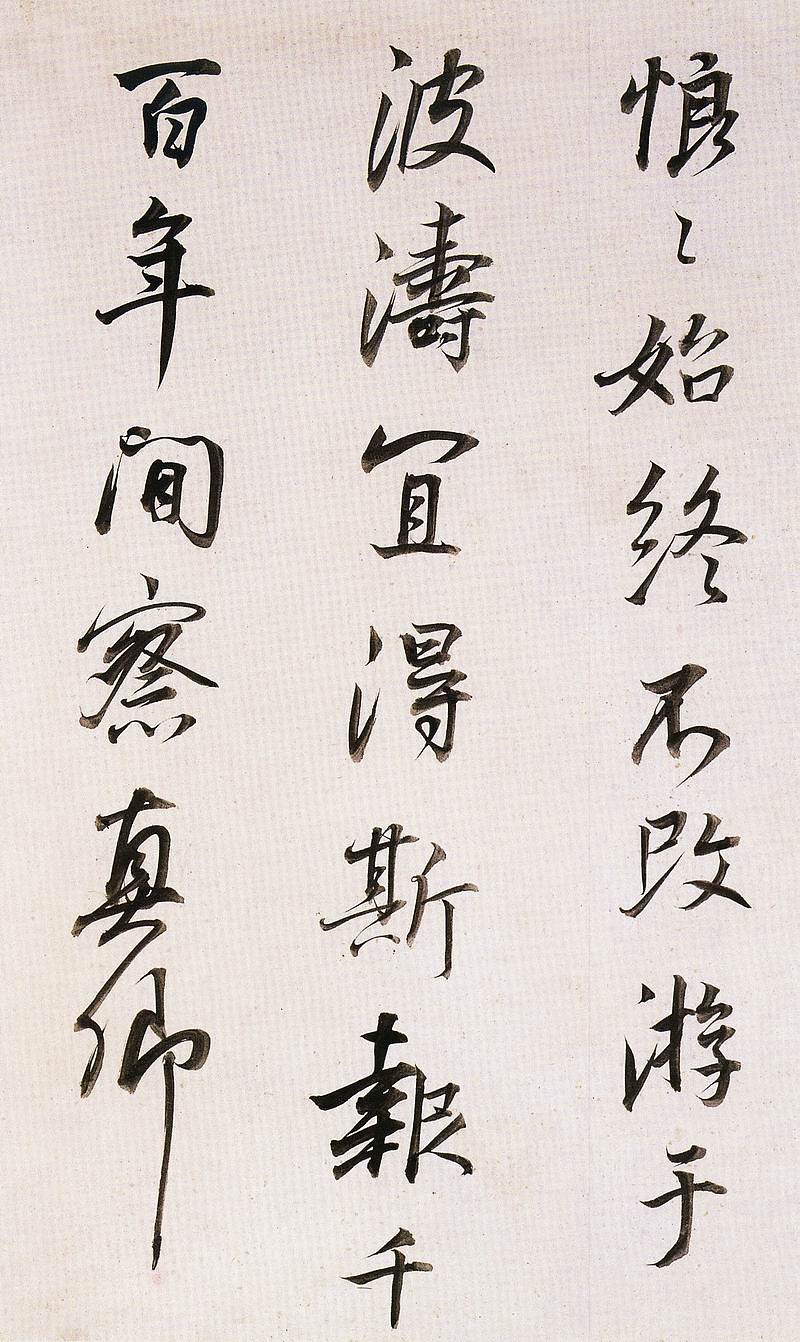 恨〻始终不改游于
波濤宜得斯報千
百年間察真卿